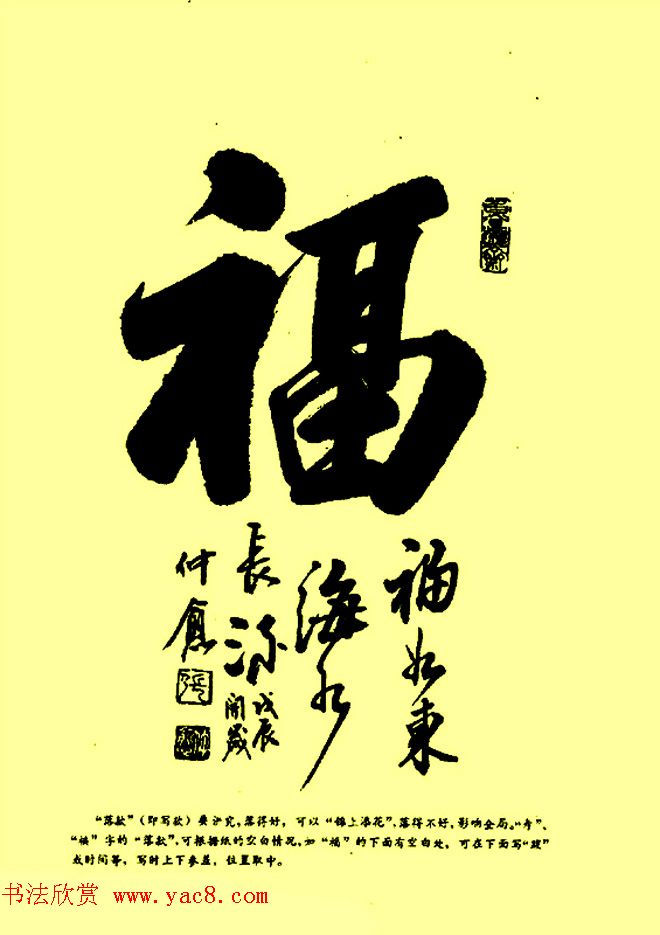 福
福如東
海水
長流
戊辰
開歲
仲愈
“落款”（即写款）要讲究,落得好，可以“锦上添花”,落得不好,影响全局。“寿”、
“福”字的“落款”,可根据纸的空白情况,如“福”的下面有空白处，可在下面写“跋”
或时间等，写时上下参差，位置取中。
书法欣赏 www.yac8.com